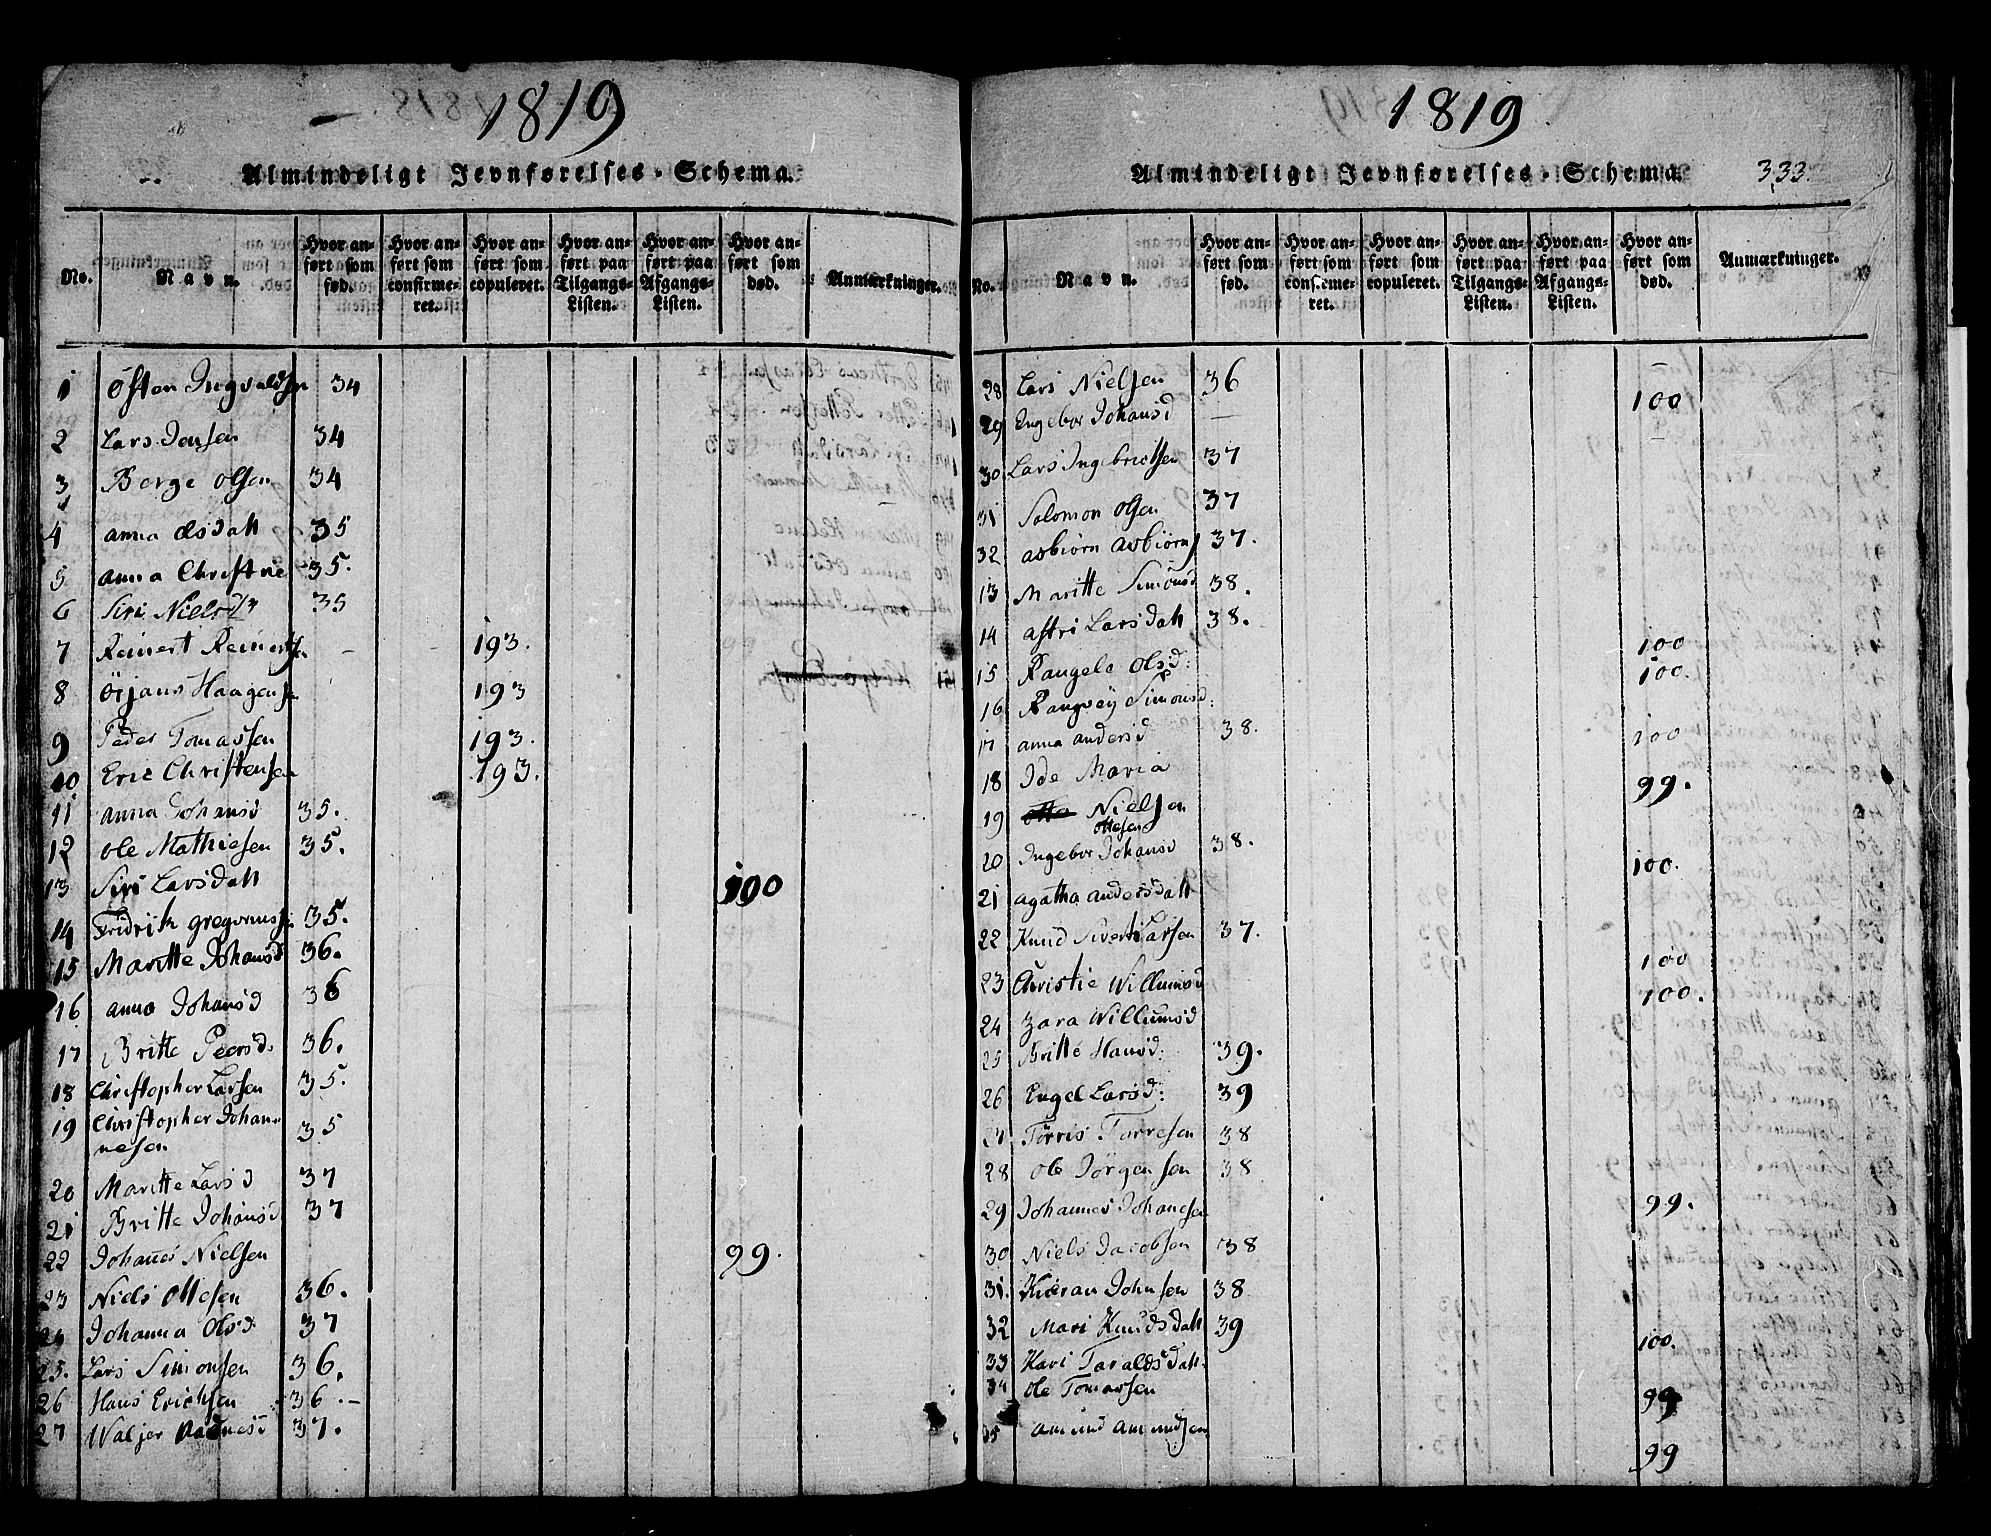 1819
Almindeligt Jevnførelses-Schema.
No.
Navn.
Hvor anført som fød.
Hvor anført som confirmeret.
Hvor anført som copuleret.
Hvor anført paa Tilgangs-Listen.
Hvor anført paa Afgangs-Listen.
Hvor anført som død.
Anmærkninger.
1 Østen Ingvaldsen 34
2 Lars Jensen 34
3 Børge Olsen 34
4 anna olsdatt 35
5 anna Christine 35.
6 Siri Nielsd 35
7 Reinert Reinerts. 193.
8 Örjans Haagensen 193
9 Peder Tomassen 193.
10 Eric Christensen 193.
11 anna Johansd 35.
12 ole Mathiesen 35.
13 Siri Larsdatt 100
14 Fridrik gregoriuss. 35.
15 Maritte Johansd 36.
16 anna Johansd 36
17 Britte Peersd. 36.
18 Christopher Larsen 35.
19 Christopher Johan-
nesen 35
20 Maritte Larsd 37
21 Britte Johansd 37
22 Johanes Nielsen 99.
23 Niels Ottesen 36.
24 Johanna Olsd 37
25. Lars Simonsen 36.
26 Hans Erichsen 36.
27 Waljer 37.
1819
Almindeligt Jevnførelses-Schema. 333.
No.
Navn.
Hvor anført som fød.
Hvor anført som confirmeret.
Hvor anført som copuleret.
Hvor anført paa Tilgangs-Listen.
Hvor anført paa Afgangs-Listen.
Hvor anført som død.
Anmærkninger.
28 Lars Nielsen 36
29 Engebor Johansd 100
30 Lars Ingebrictsen 37
31 Solomon Olsen 37
32 asbiørn asbiørns 37.
13 Maritte Simonsd 38.
14 astri Larsdatt 38.
15 Rangele Olsd: 100
16 Rangvey Simonsd: 100.
17 anna andersd 38.
18 Ide Maria 100
19 otto Nielsen 99.
ottesen
20 Ingebor Johansd 38.
21 agatha andersdatt 100.
22 Knud Sivert Larsen 37.
23 Christie Willumsd 100
24 Zara Willumsd 100.
25 Britte Hansd: 39.
26 Engel Larsd: 39
27 Törris Torresen 38
28 ole Jörgensen 38
29 Johannes Johanesen 99.
30 Niels Jacobsen 38
31. Kieran Johnsen 38
32 Mari Knudsdatt 39
33 Kari Taraldsdatt. 100.
34 ole Tomassen 99
35 amund amundsen 99